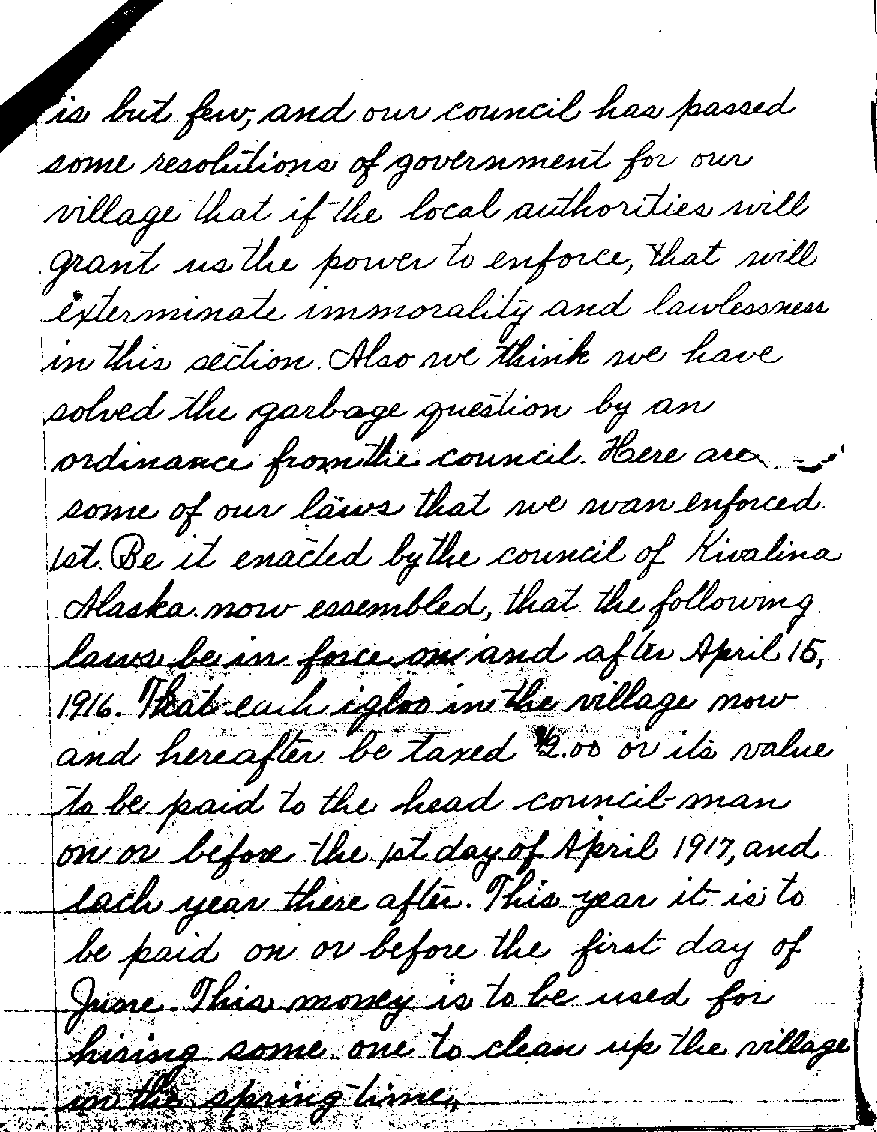 is but few, and our council has passed
some resolutions of government for our
village that if the local authorities will
grant us the power to enforce, that will
exterminate immorality and lawlessness
in this section. Also we think we have
solved the garbage question by an
ordinance from the council. Here are
some of our laws that we wan enforced.
1st. Be it enacted by the council of Kivalina
Alaska now essembled, that the following
laws be in force on and after April 15,
1916. That each igloo in the village now
and hereafter be taxed $2.00 or its value
to be paid to the head council-man
on or before the 1st day of April 1917, and
each year there after. This year it is to
be paid on or before the first day of
June. This money is to be used for
hiring some one to clean up the village
in the spring-time,,